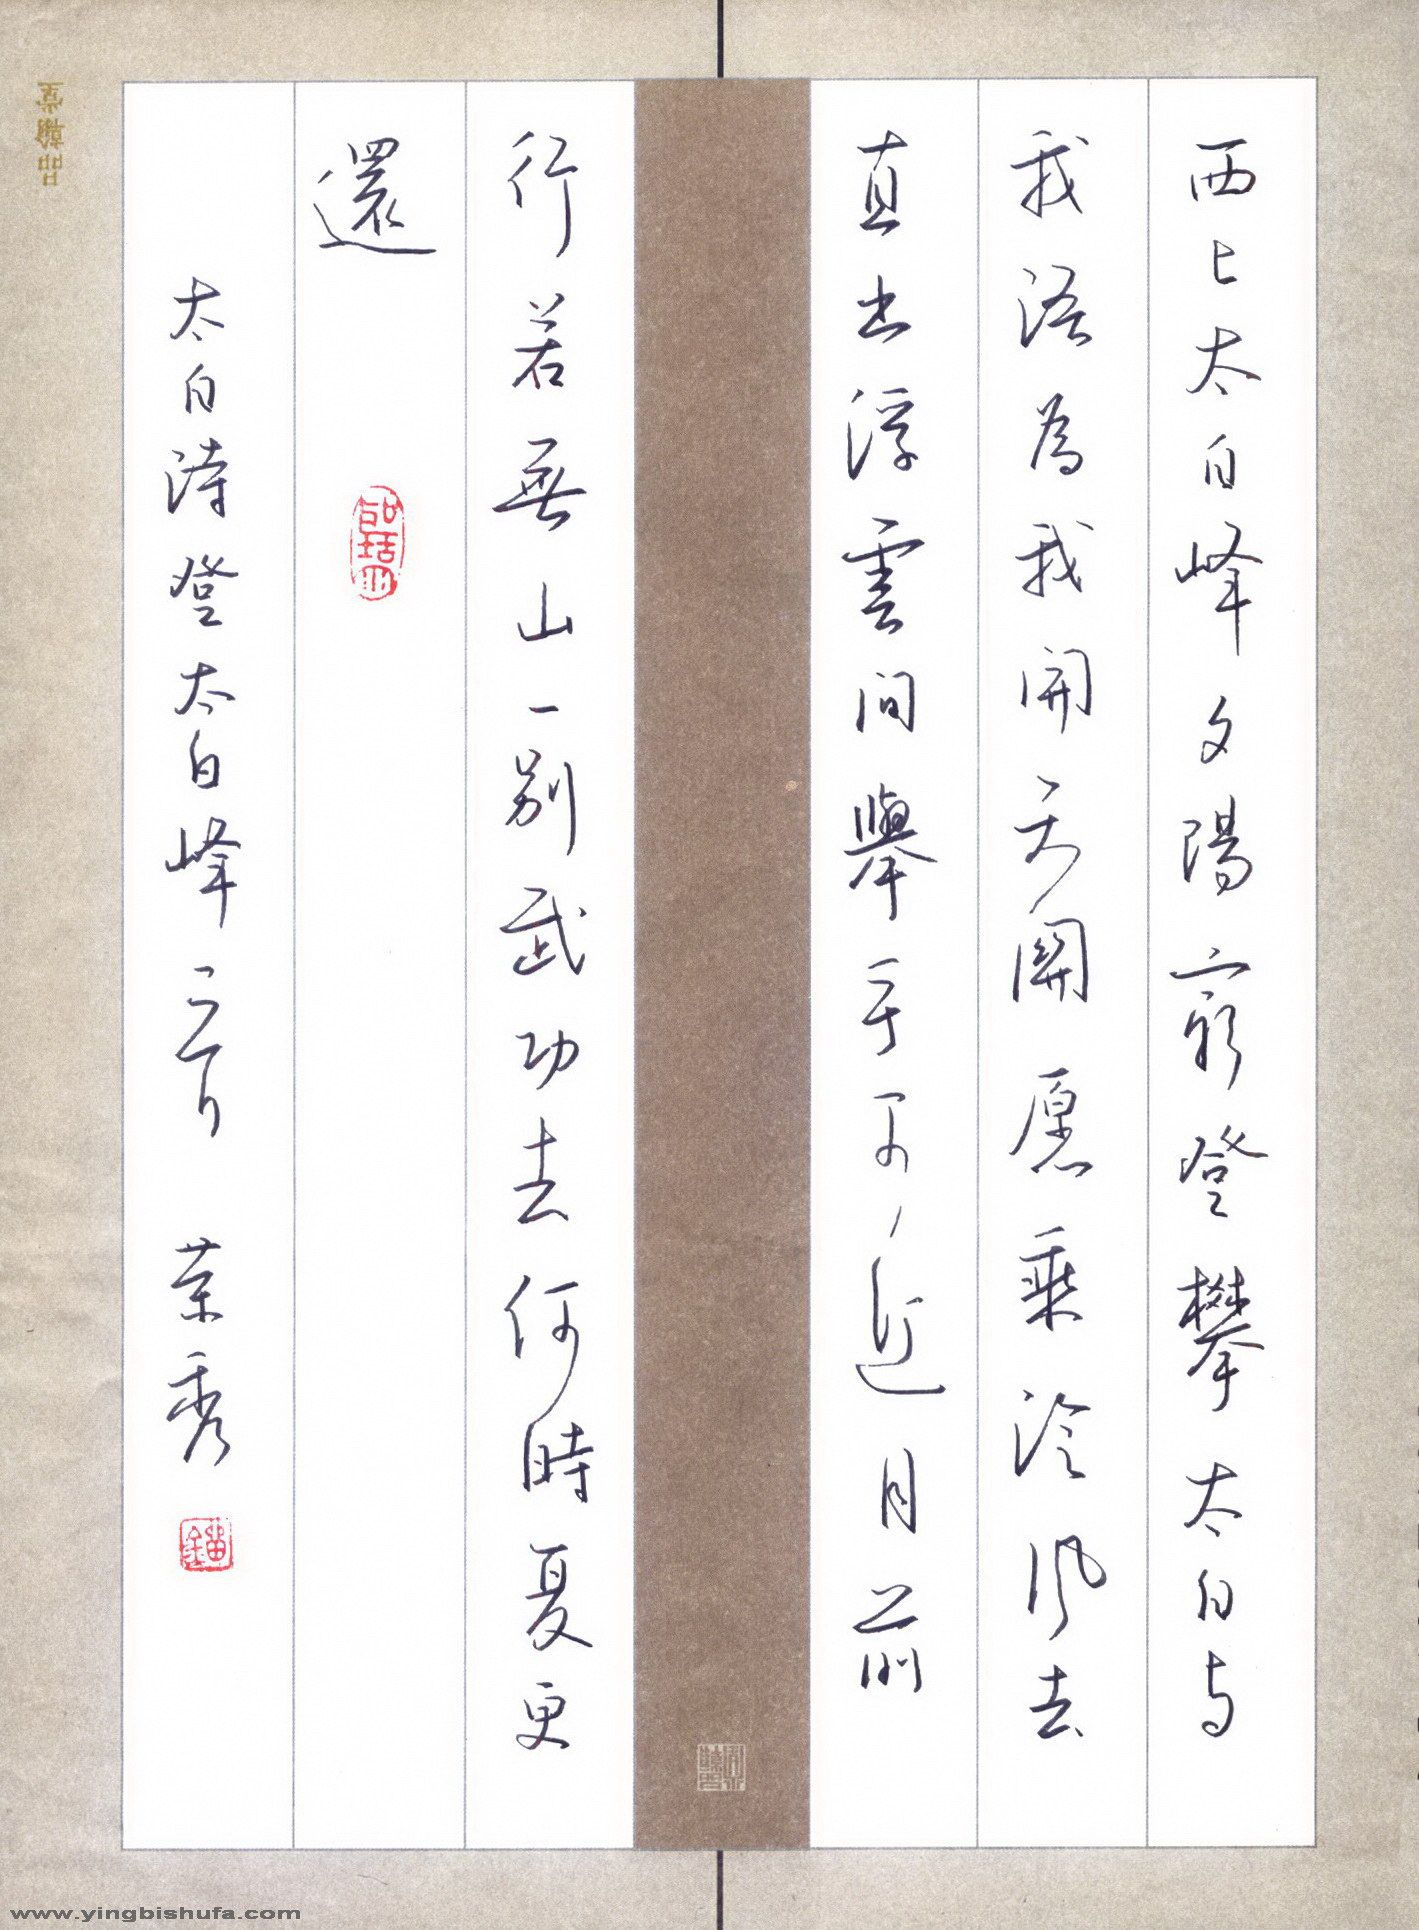 西上太白峰夕陽窮登攀太白与
我語為我開天關愿乘泠風去
直出浮雲間舉手可近月前
行若無山一别武功去何時复更
還
太白詩登太白峰一首
秀
品翰堂
www.yingbishufa.com